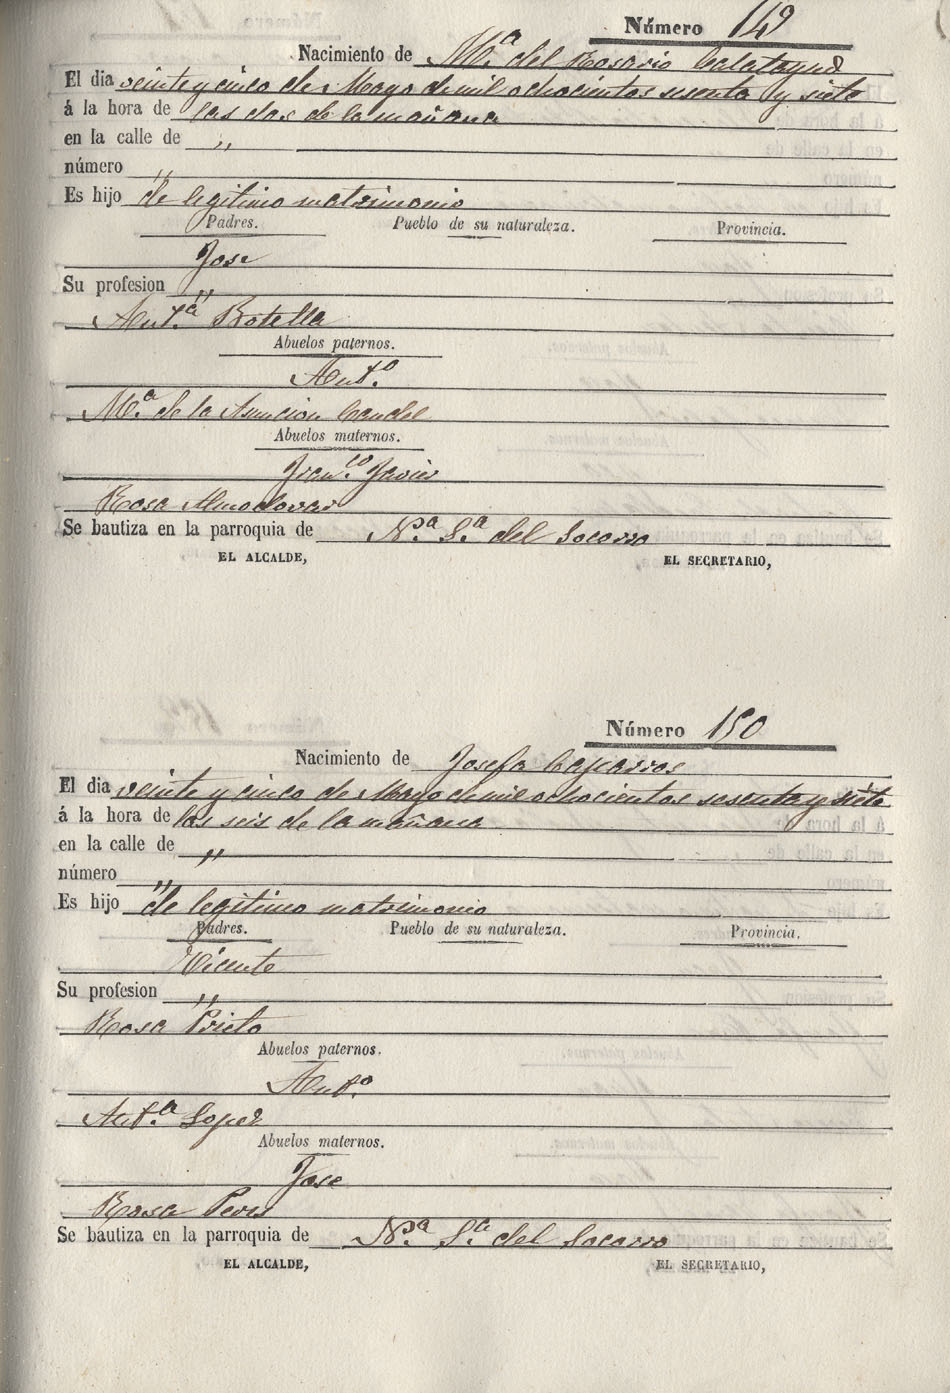 Número 149
Nacimiento de Mª del Rosario Calatayud
El dia veinte y cinco de Mayo de mil ochocientos sesenta y siete
á la hora de las dos de la mañana
en la calle de ,,
número ,,
Es hijo de legitimo matrimonio
Padres. Pueblo de su naturaleza. Provincia.
Jose
Su profesion ,,
Antª Botella
Abuelos paternos.
Antº
Mª de la Asuncion Candel
Abuelos maternos.
Francº Javier
Rosa Almodovar
Se bautiza en la parroquia de Nª Sª del Socorro
EL ALCALDE, EL SECRETARIO,
Número 150
Nacimiento de Josefa Caparros
El dia veinte y cinco de Mayo de mil ochocientos sesenta y siete
á la hora de las seis de la mañana
en la calle de ,,
número ,,
Es hijo de legitimo matrimonio
Padres. Pueblo de su naturaleza. Provincia.
Vicente
Su profesion ,,
Rosa Prieto
Abuelos paternos.
Antº
Antª Lopez
Abuelos maternos.
Jose
Rosa Peris
Se bautiza en la parroquia de Nª Sª del Socorro
EL ALCALDE, EL SECRETARIO,